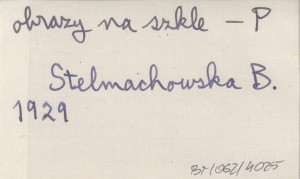 obrazy na szkle – P
Stelmachowska B.
1929
BT/062/4025